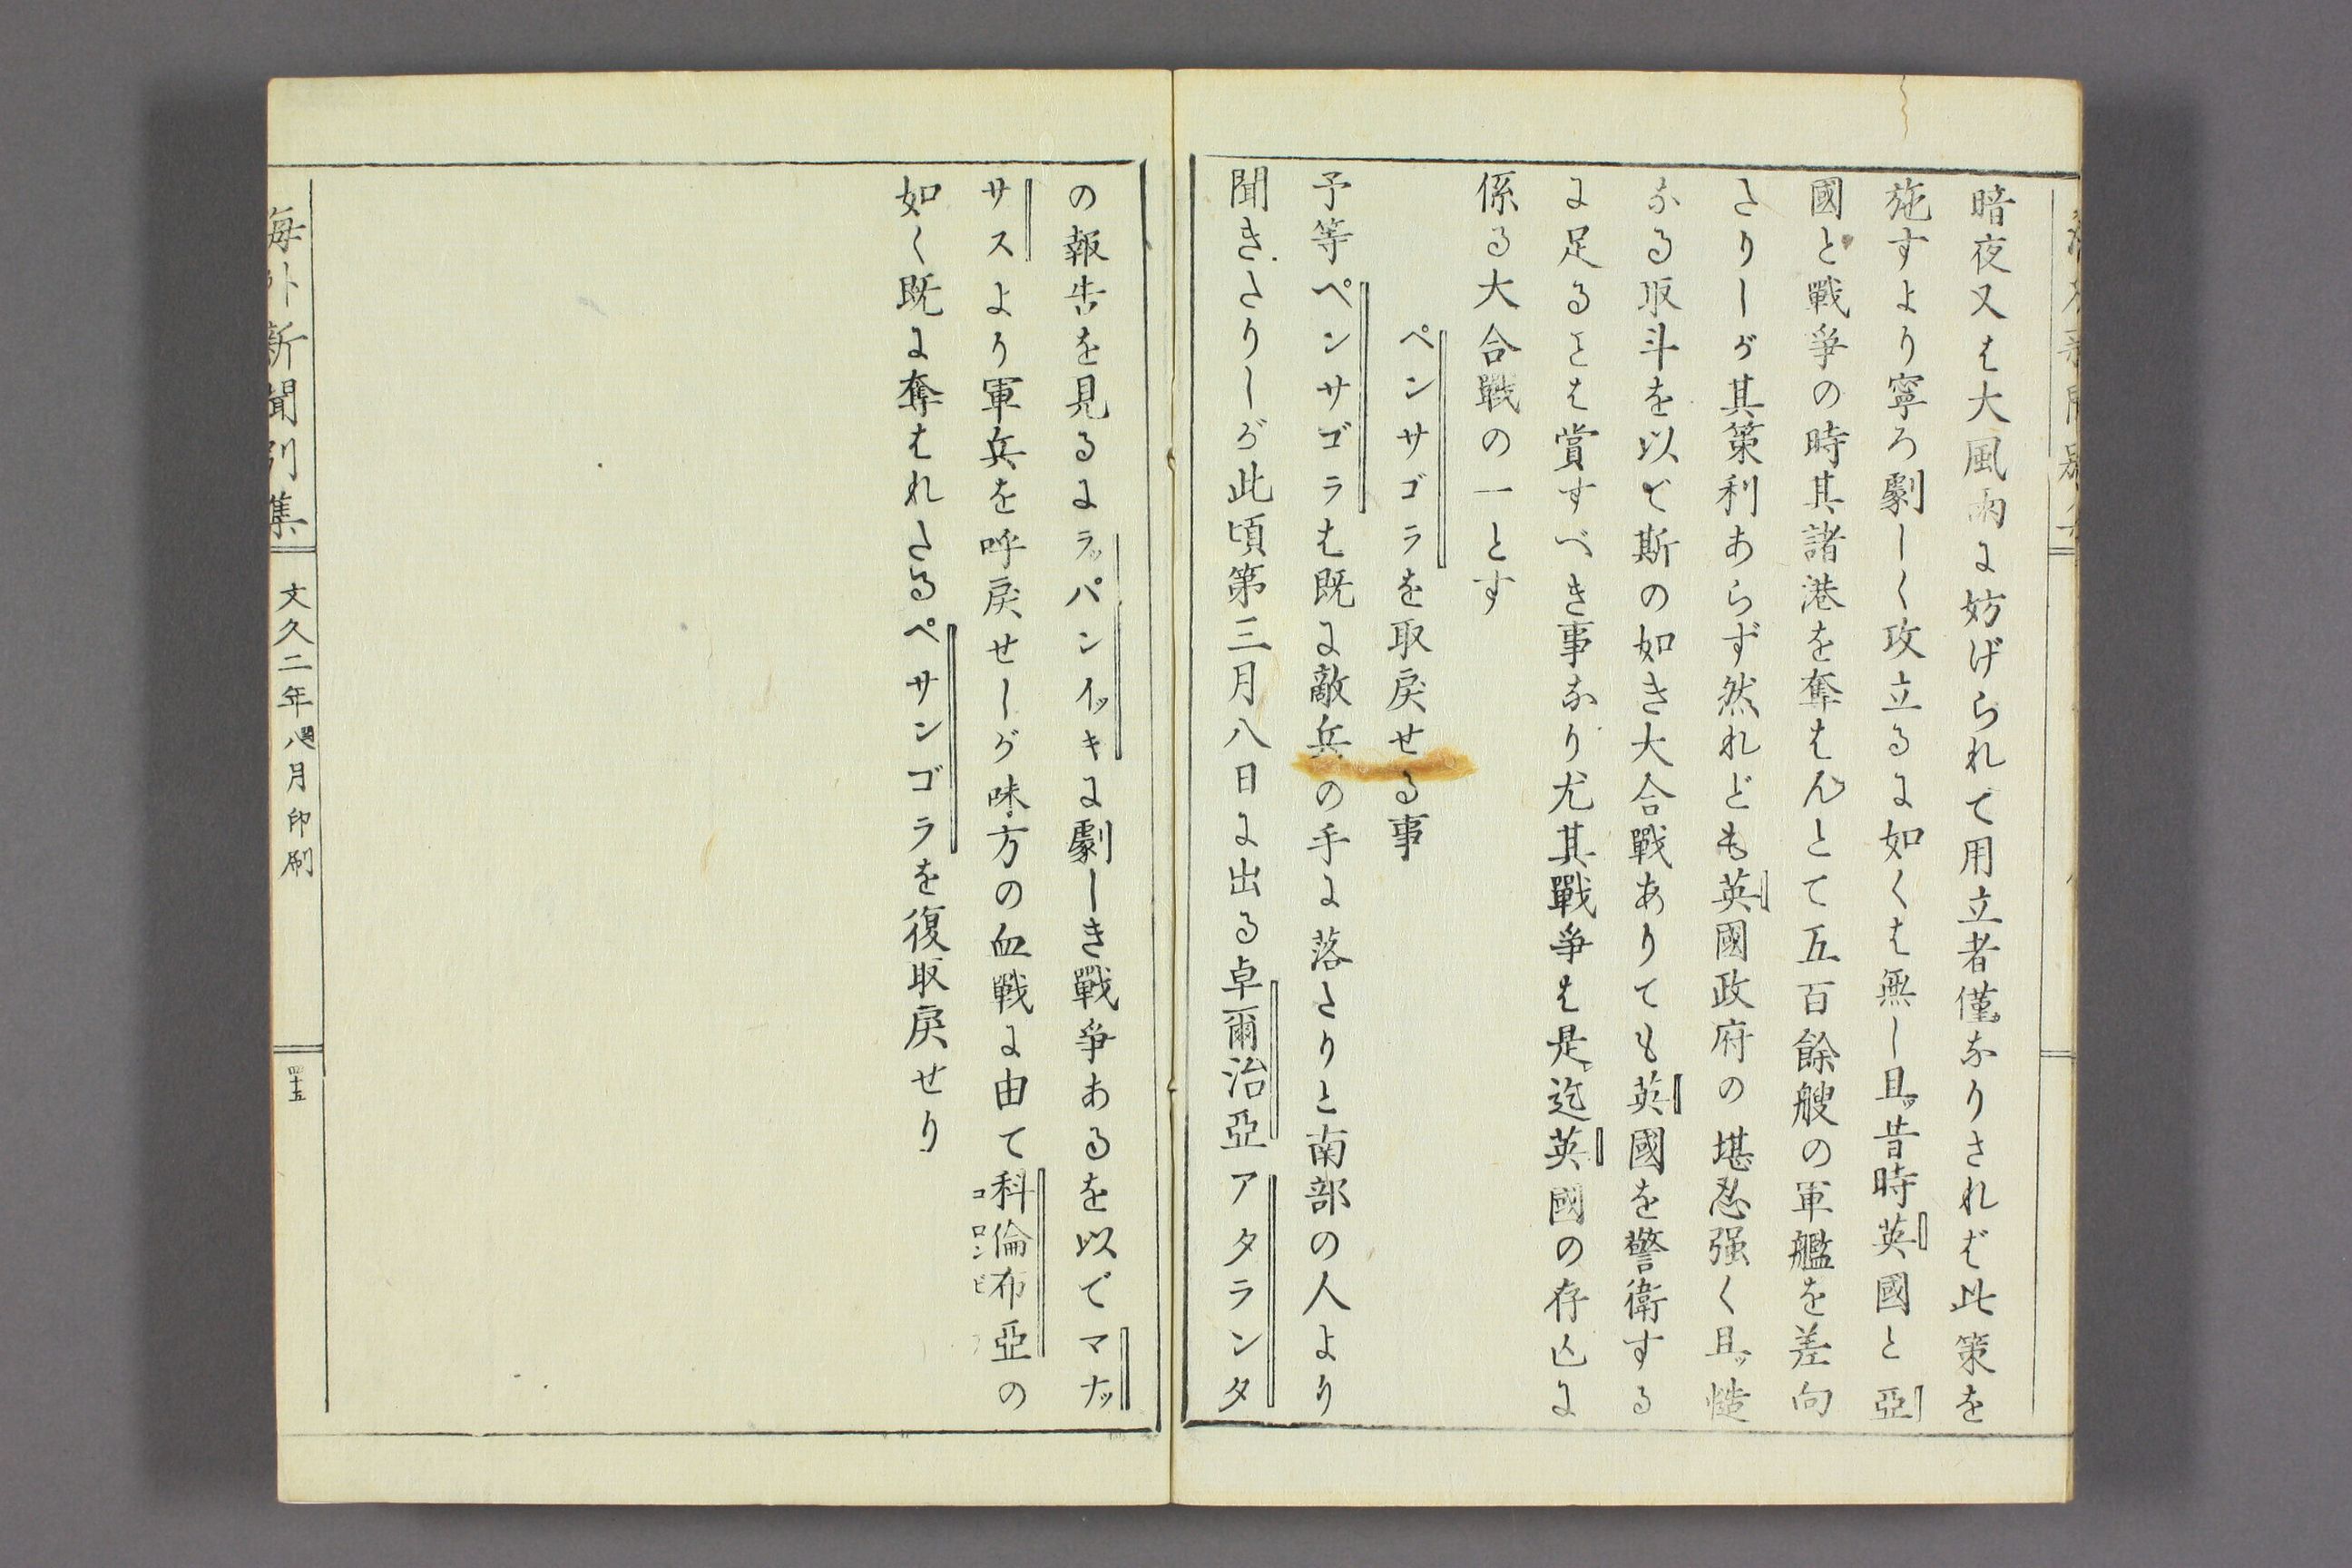 暗夜又は大風雨に妨げられて用立者僅なりされば此策を
施すより寧ろ劇しく攻立るに如くは無し且ッ昔時英國と亞
國と戰爭の時其諸港を奪はんとて五百餘艘の軍艦を差向
たりしが其策利あらず然れども英國政府の堪忍强く且ッ慥
なる取斗を以て斯の如き大合戰ありても英國を警衛する
に足るとは賞すべき事なり尤其戰爭は是迄英國の存亡に
係る大合戰の一とす
ペンサゴラを取戻せる事
予等ペンサゴラは既に敵兵の手に落たりと南部の人より
聞きたりしが此頃第三月八日に出る卓爾治亞アタランタ
の報告を見るにラッパンイッキに劇しき戰爭あるを以てマナッ
サスより軍兵を呼戻せしが味方の血戰に由て科倫布亞の
コロンビ
如く既に奪はれたるペサンゴラを復取戻せり
海外新聞別集
文久二年閏八月印刷
四十五